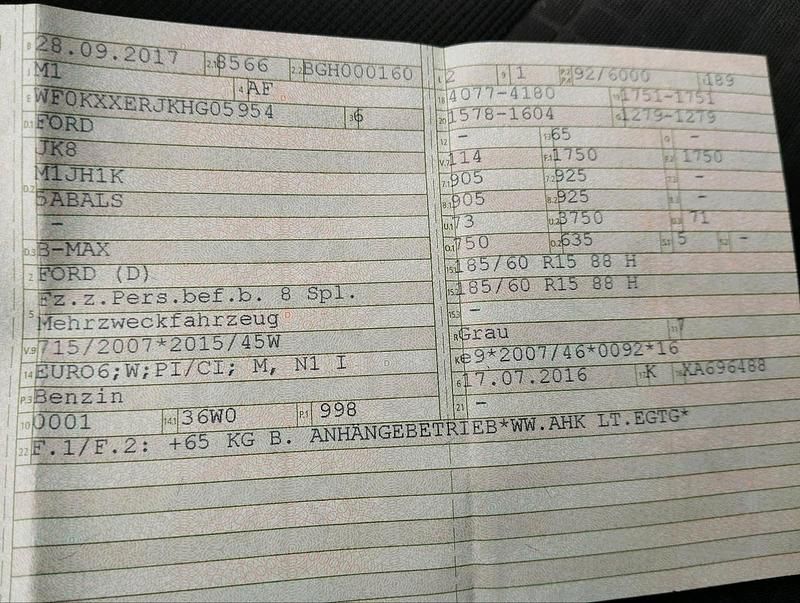 B 28.09.2017 2.1 8566 2.2 BGH000160
J M1 4 AF
E WF0KXXERJKHG05954 3 6
D.1 FORD
JK8
D.2 M1JH1K
5ABALS
-
D.3 B-MAX
2 FORD (D)
5 Fz.z.Pers.bef.b. 8 Spl.
Mehrzweckfahrzeug
V.9 715/2007*2015/45W
14 EURO6;W;PI/CI; M, N1 I
P.3 Benzin
10 0001 14.1 36W0 P.1 998
22 F.1/F.2: +65 KG B. ANHÄNGEBETRIEB*WW.AHK LT.EGTG*
L 2 9 1 P.2 P.4 92/6000 T 189
18 4077-4180 19 1751-1751
20 1578-1604 G 1279-1279
12 - 13 65 Q -
V.7 114 F.1 1750 F.2 1750
7.1 905 7.2 925 7.3 -
8.1 905 8.2 925 8.3 -
U.1 73 U.2 3750 U.3 71
O.1 750 O.2 635 S.1 5 S.2 -
15.1 185/60 R15 88 H
15.2 185/60 R15 88 H
15.3 -
R Grau 11 7
K e9*2007/46*0092*16
6 17.07.2016 17 K 16 XA696488
21 -